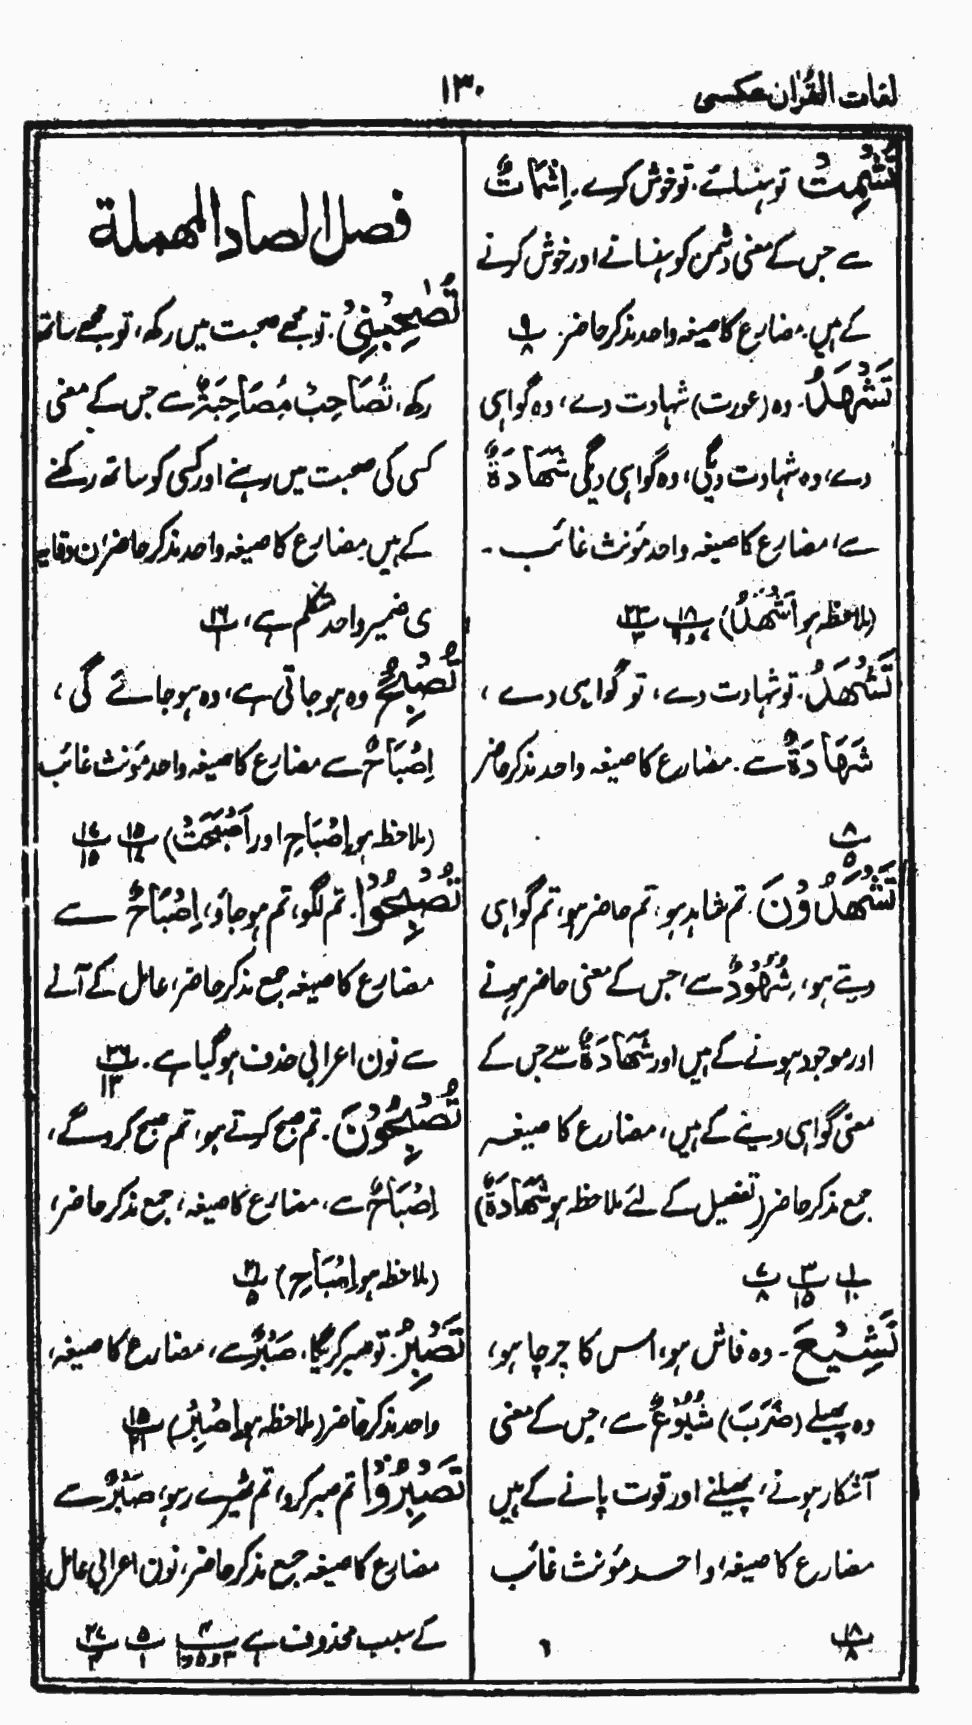 لغات القرآن عکسی
۱۳۰
تُشْمِتْ تو ہنسائے۔ تو خوش کرے۔ اِشْمَاتٌ
سے جس کے معنی دشمن کو ہنسانے اور خوش کرنے
کے ہیں۔ مضارع کا صیغہ واحد مذکر حاضر۔ ۹/۸
تَشْهَدُ۔ وہ (عورت) شہادت دے، وہ گواہی
دے، وہ شہادت دیگی، وہ گواہی دیگی شَهَادَةٌ
سے، مضارع کا صیغہ واحد مؤنث غائب ۔
(ملاحظہ ہو اَشْهَدُ) ۱۸/ ۲۳/۳
تَشْهَدُ۔ تو شہادت دے، تو گواہی دے ،
شَهَادَةٌ سے۔ مضارع کا صیغہ واحد مذکر حاضر
۸/۵
تَشْهَدُوْنَ۔ تم شاہد ہو۔ تم حاضر ہو، تم گواہی
دیتے ہو، شُهُوْدٌ سے، جس کے معنی حاضر ہونے
اور موجود ہونے کے ہیں اور شَهَادَةٌ سے جس کے
معنی گواہی دینے کے ہیں، مضارع کا صیغہ
جمع مذکر حاضر (تفصیل کے لئے ملاحظہ ہو شَهَادَةٌ)
۱/۱۰ ۳/۱۵ ۷/۸
تَشِيْعَ۔ وہ فاش ہو، اس کا چرچا ہو،
وہ پھیلے (ضَرَبَ) شُيُوْعٌ سے، جس کے معنی
آشکار ہونے، پھیلنے اور قوت پانے کے ہیں
مضارع کا صیغہ، واحد مؤنث غائب
۱۸/۸
فصل الصاد المهملة
تُصٰحِبْنِيْ۔ تو مجھے صحبت میں رکھ، تو مجھے ساتھ
رکھ، تُصَاحِبُ مُصَاحَبَةٌ سے جس کے معنی
کسی کی صحبت میں رہنے اور کسی کو ساتھ رکھنے
کے ہیں۔ مضارع کا صیغہ واحد مذکر حاضر، ن وقایہ
ی ضمیر واحد متکلم ہے، ۱۶/۱
تُصْبِحُ وہ ہو جاتی ہے، وہ ہو جائے گی ،
اِصْبَاحٌ سے مضارع کا صیغہ واحد مؤنث غائب
(ملاحظہ ہو اِصْبَاحِ اور اَصْبَحَتْ) ۱۵/۱۷ ۱۷/۱۵
تُصْبِحُوْا۔ تم لگو، تم ہو جاؤ، اِصْبَاحٌ سے
مضارع کا صیغہ جمع مذکر حاضر، عامل کے آنے
سے نون اعرابی حذف ہو گیا ہے۔ ۲۶/۱۳
تُصْبِحُوْنَ۔ تم صبح کرتے ہو، تم صبح کروگے،
اِصْبَاحٌ سے، مضارع کا صیغہ، جمع مذکر حاضر،
(ملاحظہ ہو اِصْبَاحِ) ۲۱/۵
تَصْبِرُ۔ تو صبر کریگا، صَبْرٌ سے، مضارع کا صیغہ،
واحد مذکر حاضر (ملاحظہ ہو اِصْبِرْ) ۱۵/۲۱
تَصْبِرُوْا تم صبر کرو، تم ٹھیرے رہو، صَبْرٌ سے
مضارع کا صیغہ جمع مذکر حاضر، نون اعرابی عامل
کے سبب محذوف ہے ۴/۳و۵و۱ ۵/۱ ۲۷/۳